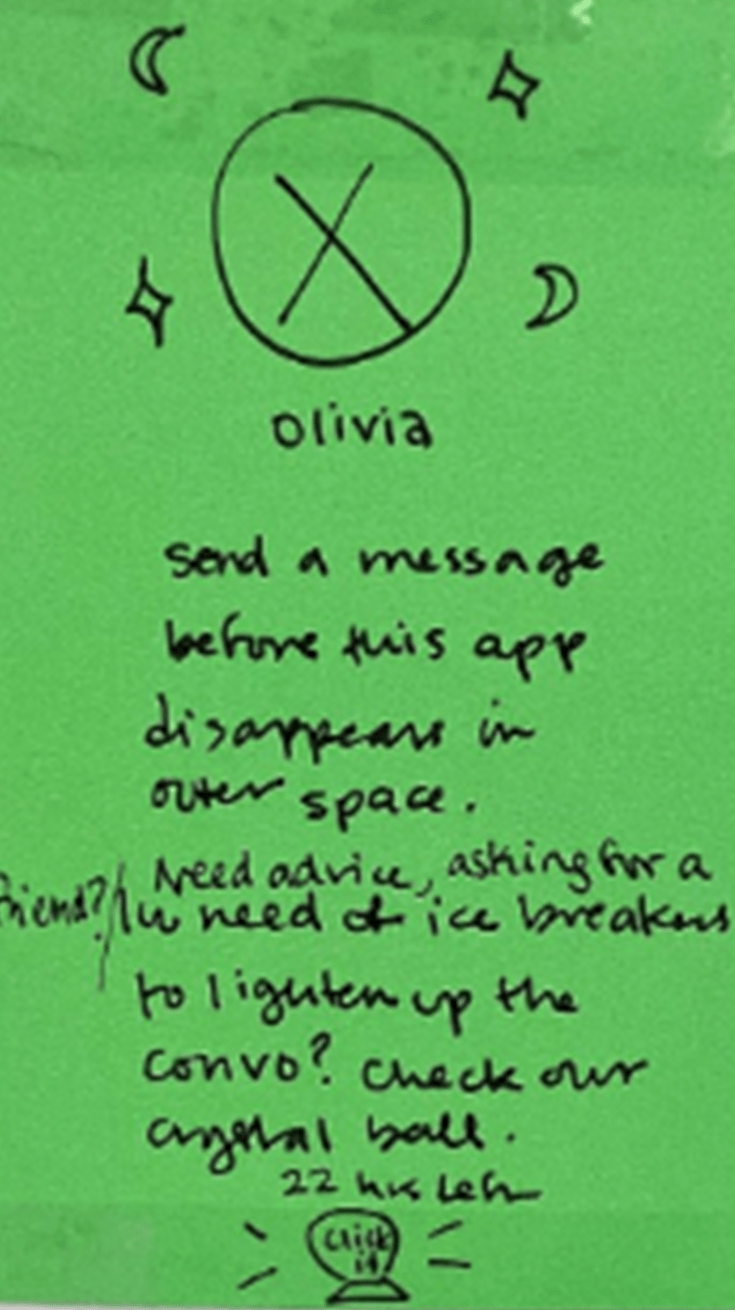 olivia
send a message
before this app
disappears in
outer space.
Need advice, asking for a
friend? / In need of ice breakers
to lighten up the
convo? Check our
crystal ball.
22 hrs left
Click
it!